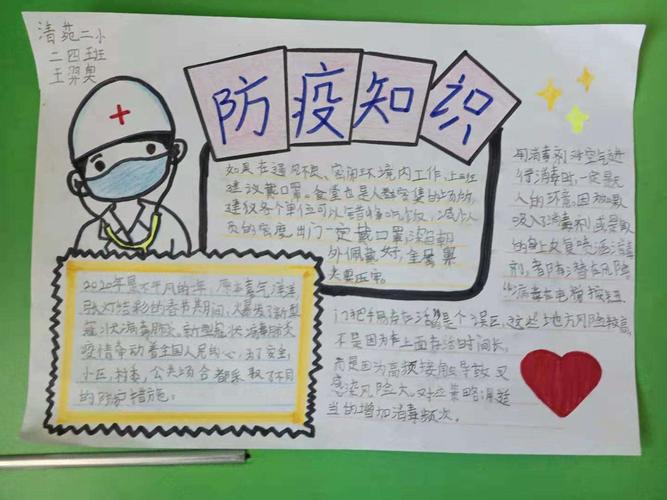 清苑二小
二四班
王羿奥
防疫知识
如果在通风不良、密闭环境内工作,上班
建议戴口罩。食堂也是人群密集的场所,
建议各个单位可以错峰吃饭,减少人
员的密度出门一定戴口罩深色朝
外佩戴好,金属条
夹要压牢。
2020年是不平凡的一年,原本喜气洋洋,
张灯结彩的春节期间,大爆发了新型
冠状病毒肺炎。新型冠状病毒肺炎
疫情牵动着全国人民的心,为了安全,
小区,村委,公共场合都采取了不同
的防护措施。
用消毒剂对空气进
行消毒时,一定是无
人的环境因如果
吸入了消毒剂,或是
的身上反复喷洒消毒
剂,者有潜在风险。
"病毒在电梯按钮
门把手易存活"是个误区,这些地方风险较高,
不是因为在上面存活时间长,
而是因为高频接触导致
感染风险大。对应策略得适
当的增加消毒频次。